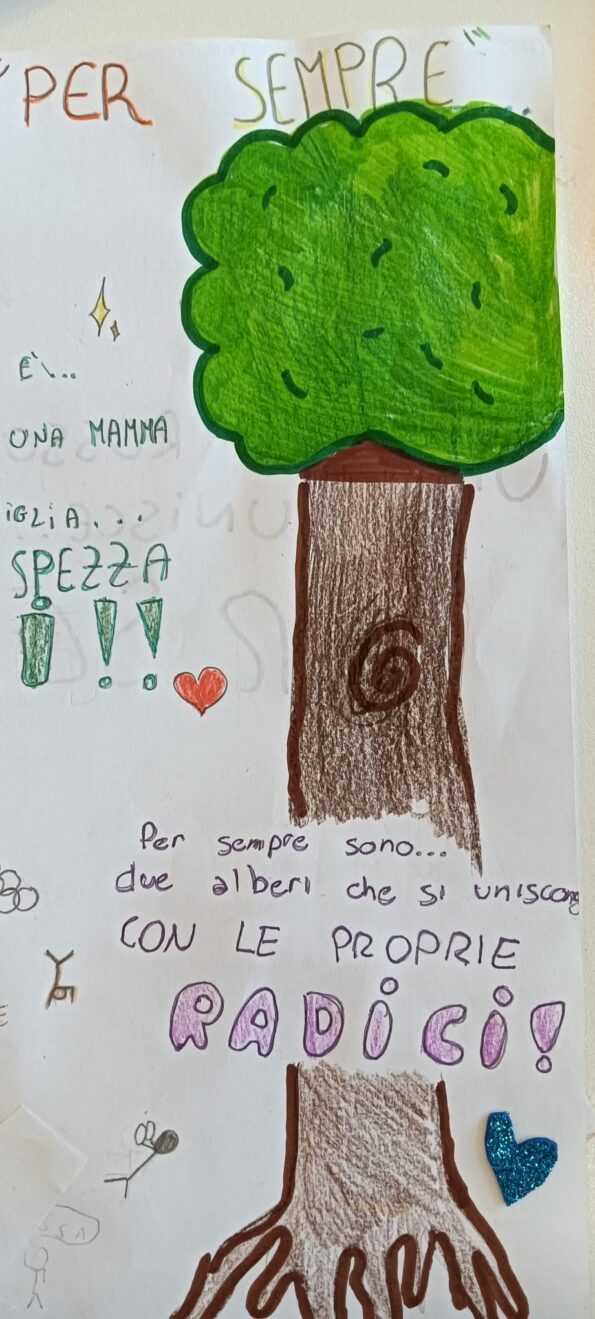 "PER SEMPRE"...
È...
UNA MAMMA
IGLIA...
SPEZZA
!!!
Per sempre sono...
due alberi che si uniscono
CON LE PROPRIE
RADICI!